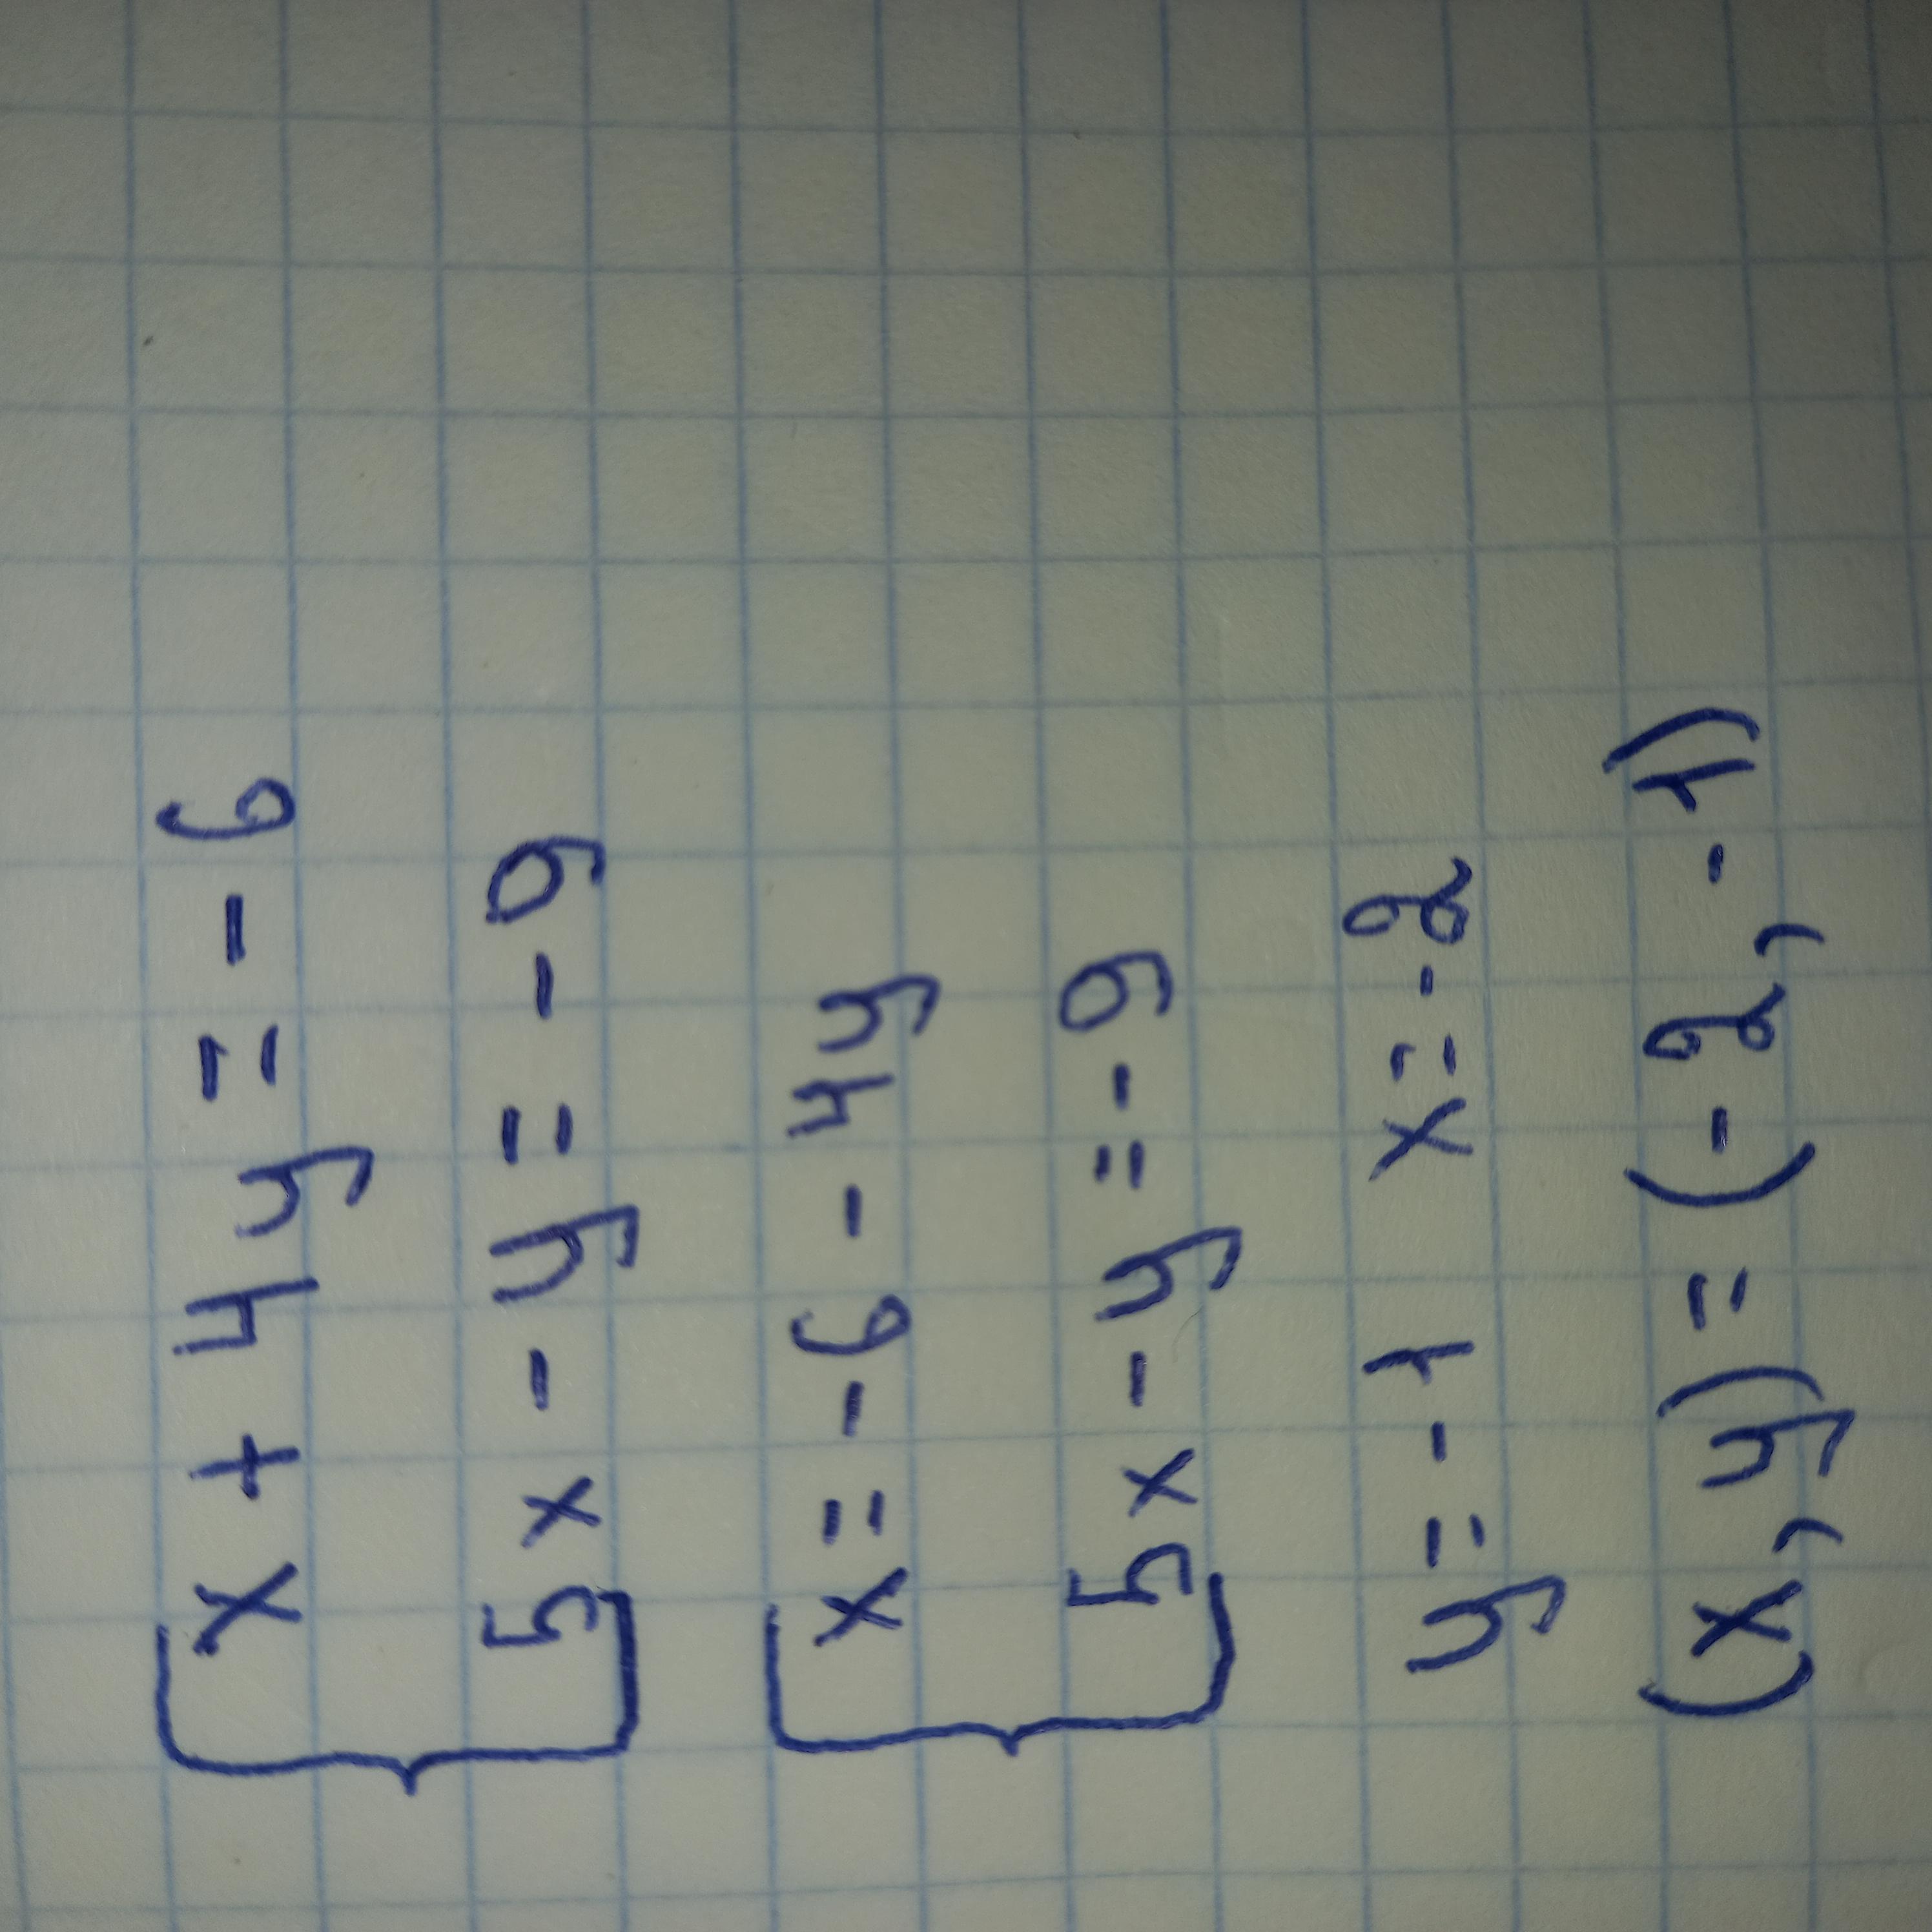 x + 4y = -6
5x - y = -9
x = -6 - 4y
5x - y = -9
y = -1 x = -2
(x, y) = (-2, -1)